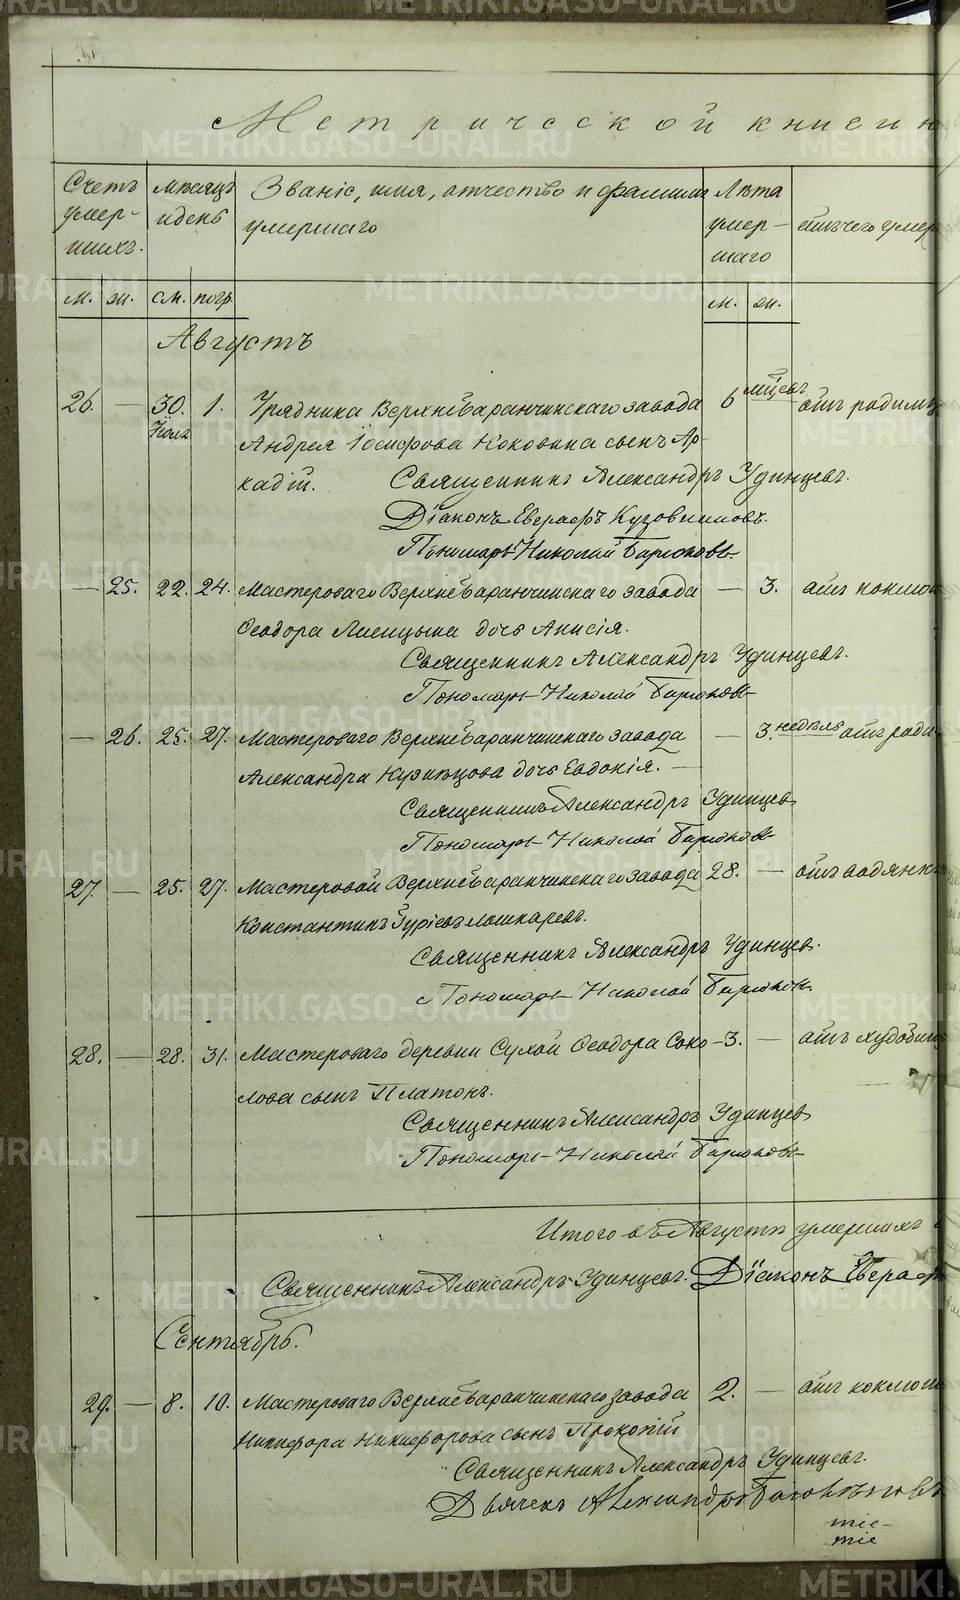 METRIKI.GASO-URAL.RU
Метрической книги
Счетъ умершихъ.
Мѣсяцъ и день
Званіе, имя, отчество и фамилія умершаго
Лѣта умершаго
отъ чего умер
м. ж. см. погр. м. ж.
Августъ
26. — 30. 1. Урядника Верхнебаранчинскаго завода 6 мѣсяц. отъ родимц
Іюля Андрея Іосифова Коковина сынъ Ар-
кадій. Священникъ Александръ Удинцевъ.
Діаконъ Еверафъ Кузовниковъ.
Пономарь Николай Бирюковъ
— 25. 22. 24. Мастероваго Верхнебаранчинскаго завода — 3. отъ коклюш
Ѳеодора Лисицына дочь Анисія.
Священникъ Александръ Удинцевъ.
Пономарь Николай Бирюковъ
— 26. 25. 27. Мастероваго Верхнебаранчинскаго завода — 3. недѣль отъ роди
Александра Кузнецова дочь Евдокія. —
Священникъ Александръ Удинцев
Пономарь Николай Бирюковъ
27. — 25. 27. Мастеровой Верхнебаранчинскаго завода 28. — отъ водянк
Константинъ Гурьевъ Лошкаревъ.
Священникъ Александръ Удинцев.
Пономарь Николай Бирюковъ.
28. — 28. 31. Мастероваго деревни Сухой Ѳеодора Соко- 3. — отъ худобищ
лова сынъ Платонъ.
Священникъ Александръ Удинцев
Пономарь Николай Бирюковъ
Итого въ Августѣ умершихъ
Священникъ Александръ Удинцевъ. Діаконъ Евераф
Сентябрь.
29. — 8. 10. Мастероваго Верхнебаранчинскаго завода 2. — отъ коклюш
Никифора Никифорова сынъ Прокопій
Священникъ Александръ Удинцевъ.
Дьячекъ Александръ